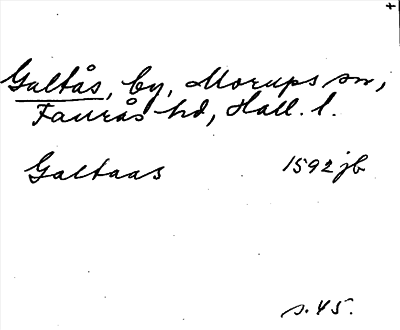 +
Galtås, by, Morups sn,
Faurås hd, Hall. l.
Galtaas 1592 jb
s. 45.